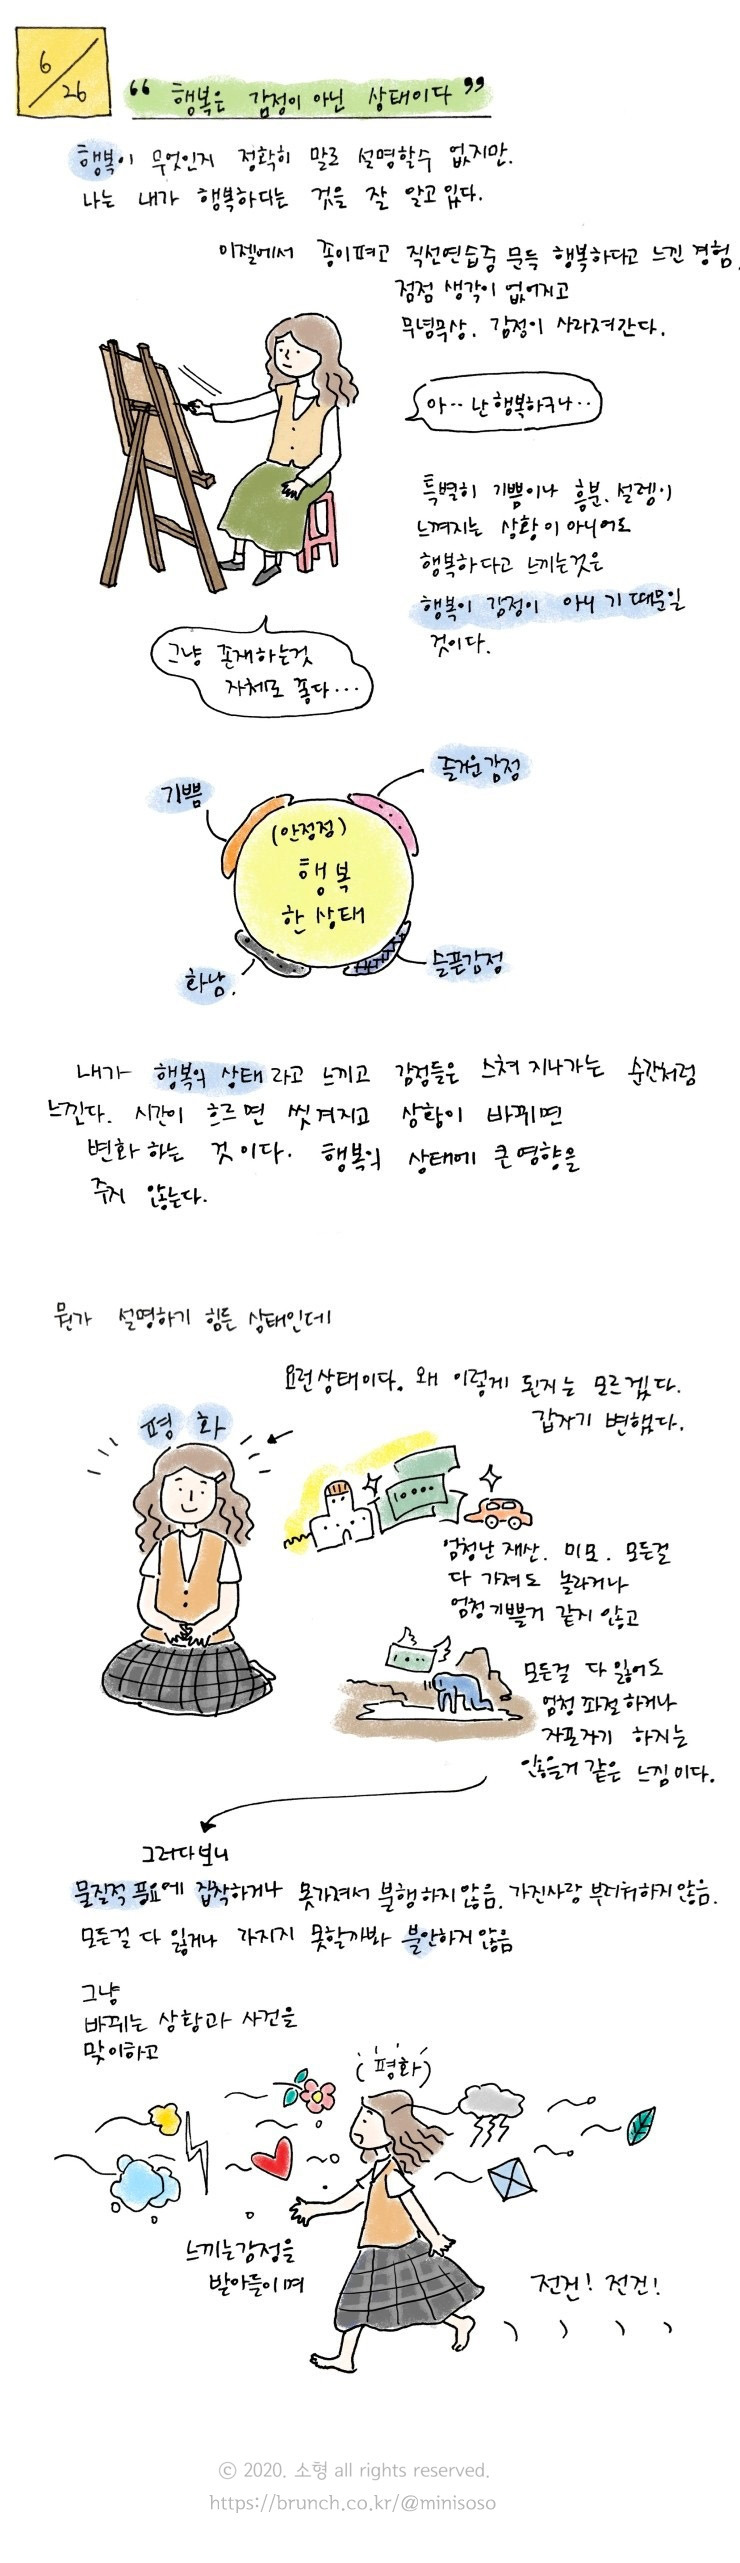 6/26
“ 행복은 감정이 아닌 상태이다 ”
행복이 무엇인지 정확히 말로 설명할수 없지만.
나는 내가 행복하다는 것을 잘 알고있다.
이젤에서 종이펴고 직선연습중 문득 행복하다고 느낀 경험.
점점 생각이 없어지고
무념무상. 감정이 사라져간다.
아.. 난 행복하구나..
특별히 기쁨이나 흥분. 설렘이
느껴지는 상황이 아니어도
행복하다고 느끼는것은
행복이 감정이 아니기 때문일
것이다.
그냥 존재하는것
자체로 좋다...
기쁨
즐거운감정
(안정점)
행복
한 상태
화남.
슬픈감정
내가 행복의 상태라고 느끼고 감정들은 스쳐 지나가는 순간처럼
느낀다. 시간이 흐르면 씻겨지고 상황이 바뀌면
변화 하는 것이다. 행복의 상태에 큰영향을
주지 않는다.
뭔가 설명하기 힘든 상태인데
요런상태이다. 왜 이렇게 된지는 모르겠다.
갑자기 변했다.
평화
엄청난 재산. 미모. 모든걸
다 가져도 놀라거나
엄청기쁠거 같지 않고
모든걸 다 잃어도
엄청 좌절하거나
자포자기 하지는
않을거 같은 느낌이다.
그러다보니
물질적 풍요에 집착하거나 못가져서 불행하지않음. 가진사람 부러워하지않음.
모든걸 다 잃거나 가지지 못할까봐 불안하지 않음
그냥
바뀌는 상황과 사건을
맞이하고
(평화)
느끼는감정을
받아들이며
전진! 전진!
© 2020. 소형 all rights reserved.
https://brunch.co.kr/@minisoso